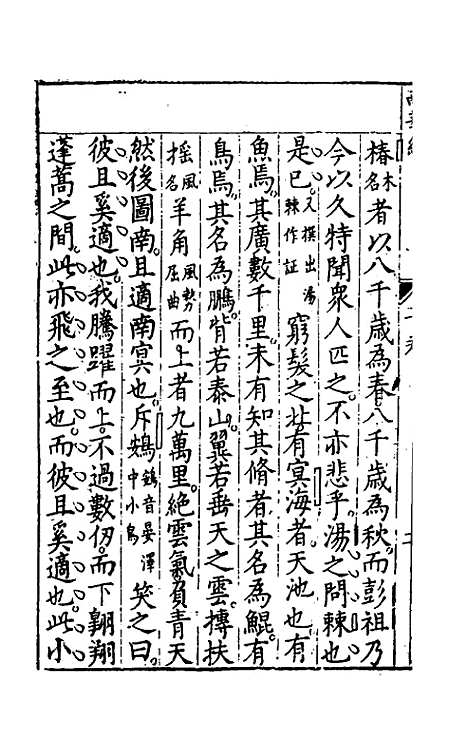 椿木名者以八千歲為春八千歲為秋而彭祖乃
今以久特聞衆人匹之不亦悲乎湯之問棘也
是已又撰出湯棘作証窮髮之北有冥海者天池也有
魚焉其廣數千里未有知其脩者其名為鯤有
鳥焉其名為鵬背若泰山翼若垂天之雲摶扶
搖風名羊角風勢屈曲而上者九萬里絕雲氣負青天
然後圖南且適南冥也斥鴳鴳音晏澤中小鳥笑之曰
彼且奚適也我騰躍而上不過數仞而下翱翔
蓬蒿之間此亦飛之至也而彼且奚適也此小